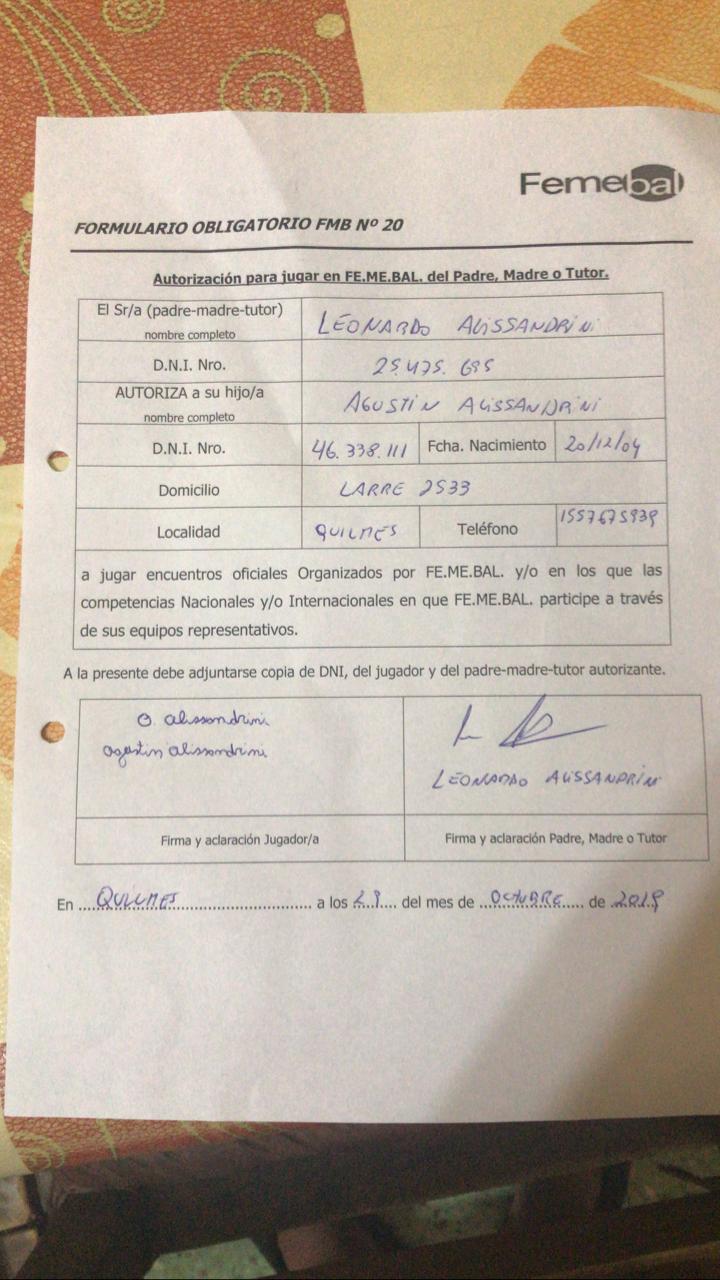 Femebal
FORMULARIO OBLIGATORIO FMB Nº 20
Autorización para jugar en FE.ME.BAL. del Padre, Madre o Tutor.
El Sr/a (padre-madre-tutor)
nombre completo
LEONARDO ALISSANDRINI
D.N.I. Nro.
25.475.695
AUTORIZA a su hijo/a
nombre completo
AGUSTIN ALISSANDRINI
D.N.I. Nro.
46.338.111
Fcha. Nacimiento
20/12/04
Domicilio
LARRE 2533
Localidad
QUILMES
Teléfono
1557675939
a jugar encuentros oficiales Organizados por FE.ME.BAL. y/o en los que las
competencias Nacionales y/o Internacionales en que FE.ME.BAL. participe a través
de sus equipos representativos.
A la presente debe adjuntarse copia de DNI, del jugador y del padre-madre-tutor autorizante.
a. alissandrini
agustin alissandrini
LEONARDO ALISSANDRINI
Firma y aclaración Jugador/a
Firma y aclaración Padre, Madre o Tutor
En QUILMES a los del mes de OCTUBRE de 2019